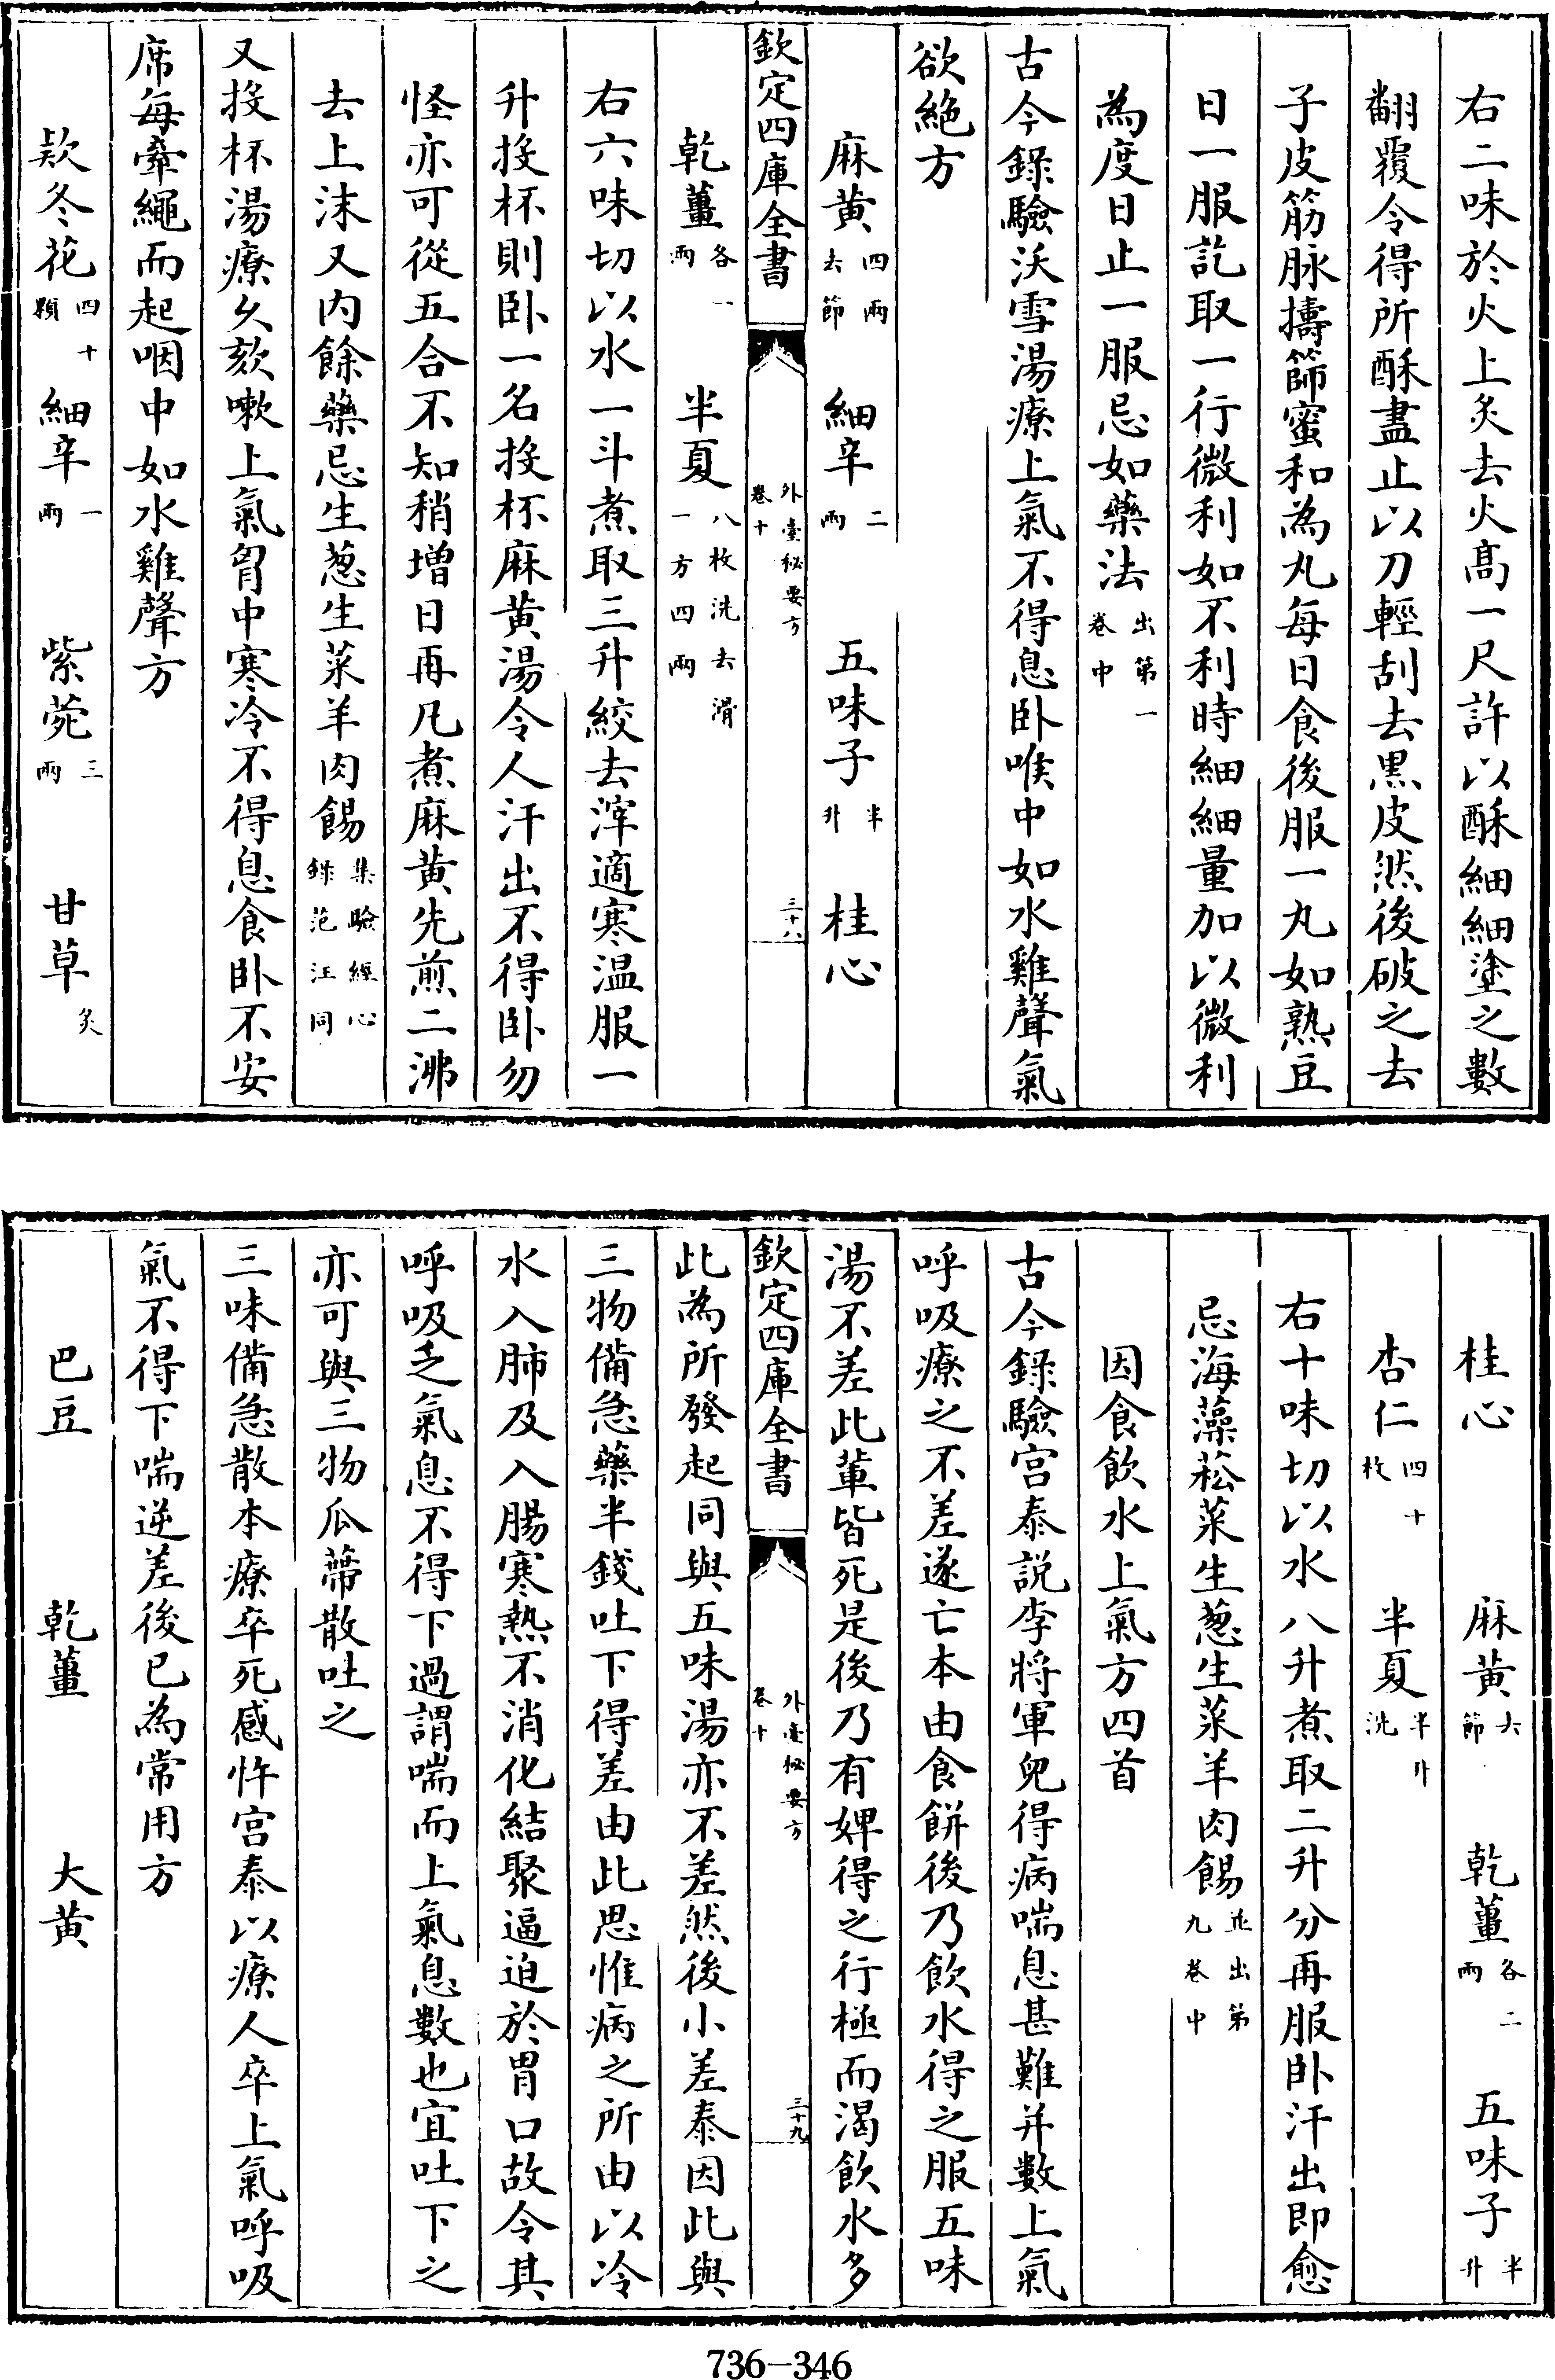 右二味於火上炙去火髙一尺許以酥細細塗之數
翻覆令得所酥盡止以刀輕刮去黒皮然後破之去
子皮筋脉擣篩蜜和為丸每日食後服一丸如熟豆
日一服訖取一行微利如不利時細細量加以微利
為度日止一服忌如藥法出第一卷中
古今錄驗沃雪湯療上氣不得息卧喉中如水雞聲氣
欲絶方
麻黄四兩去節 細辛二兩 五味子半升 桂心
欽定四庫全書 外臺秘要方卷十 三十八
乾薑各一兩 半夏八枚洗去滑一方四兩
右六味切以水一斗煮取三升絞去滓適寒温服一
升投杯則卧一名投杯麻黄湯令人汗出不得卧勿
怪亦可從五合不知稍增日再凡煮麻黄先煎二沸
去上沫又内餘藥忌生葱生菜羊肉餳集驗經心錄范汪同
又投杯湯療久欬嗽上氣胷中寒冷不得息食卧不安
席每牽繩而起咽中如水雞聲方
款冬花四十顆 細辛一兩 紫菀三兩 甘草炙
桂心 麻黄去節 乾薑各二兩 五味子半升
杏仁四十枚 半夏半升洗
右十味切以水八升煮取二升分再服卧汗出即愈
忌海藻菘菜生葱生菜羊肉餳並出第九卷中
因食飲水上氣方四首
古今錄驗宫泰説李將軍兒得病喘息甚難并數上氣
呼吸療之不差遂亡本由食餅後乃飲水得之服五味
湯不差此輩皆死是後乃有婢得之行極而渴飲水多
欽定四庫全書 外臺秘要方卷十 三十九
此為所發起同與五味湯亦不差然後小差泰因此與
三物備急藥半錢吐下得差由此思惟病之所由以冷
水入肺及入腸寒熱不消化結聚逼迫於胃口故令其
呼吸乏氣息不得下過謂喘而上氣息數也宜吐下之
亦可與三物瓜蔕散吐之
三味備急散本療卒死感忤宫泰以療人卒上氣呼吸
氣不得下喘逆差後已為常用方
巴豆 乾薑 大黄
736-346